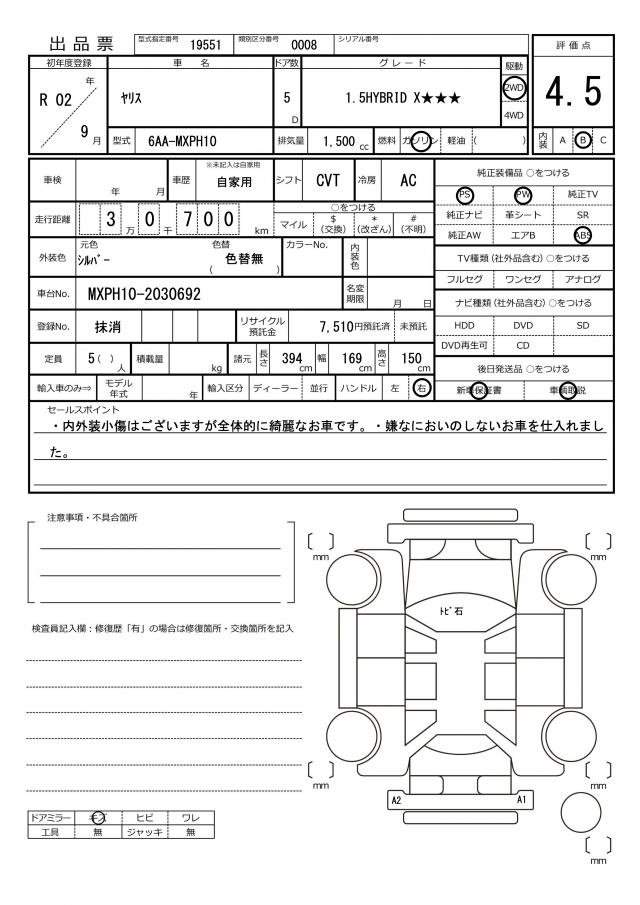 出品票 型式指定番号 19551 類別区分番号 0008 シリアル番号
評価点
4.5
内装 A B C
初年度登録 車名 ドア数 グレード 駆動
R 02 年 9 月 ヤリス 5 D 1.5HYBRID X★★★ 2WD
4WD
型式 6AA-MXPH10 排気量 1,500 cc 燃料 ガソリン 軽油 ( )
車検 年 月 車歴 ※未記入は自家用 自家用 シフト CVT 冷房 AC
走行距離 3 万 0 千 7 0 0 km
○をつける
マイル $ (交換) * (改ざん) # (不明)
外装色 元色 シルバー 色替 ( 色替無 ) カラーNo. 内装色
車台No. MXPH10-2030692 名変期限 月 日
登録No. 抹消 リサイクル預託金 7,510円預託済 未預託
定員 5 ( ) 人 積載量 kg 諸元 長さ 394 cm 幅 169 cm 高さ 150 cm
輸入車のみ⇒ モデル年式 年 輸入区分 ディーラー 並行 ハンドル 左 右
純正装備品 ○をつける
PS PW 純正TV
純正ナビ 革シート SR
純正AW エアB ABS
TV種類(社外品含む)○をつける
フルセグ ワンセグ アナログ
ナビ種類(社外品含む)○をつける
HDD DVD SD
DVD再生可 CD
後日発送品 ○をつける
新車保証書 車輌取説
セールスポイント
・内外装小傷はございますが全体的に綺麗なお車です。・嫌なにおいのしないお車を仕入れまし
た。
注意事項・不具合箇所
検査員記入欄：修復歴「有」の場合は修復箇所・交換箇所を記入
ドアミラー キズ ヒビ ワレ
工具 無 ジャッキ 無
mm
mm
トビ石
mm
mm
A2 A1
mm